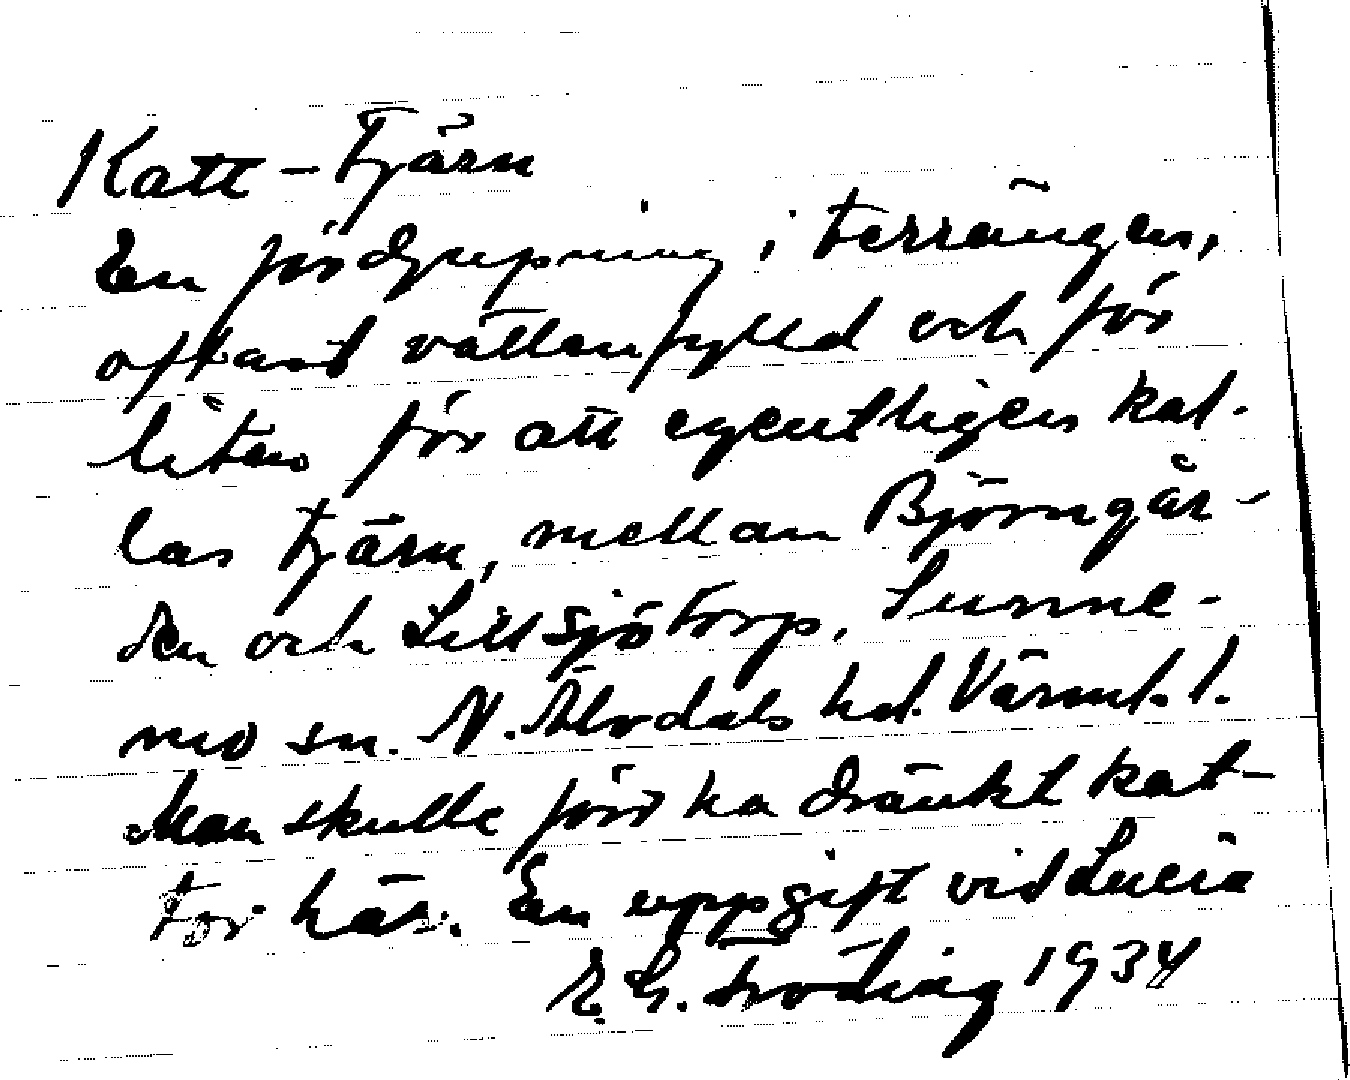 Katt-tjärn
En fördjupning i terrängen,
oftast vattenfylld och för
liten för att egentligen kal-
las tjärn, mellan Björngår-
den och Lillsjötorp, Sunne-
mo sn. N. Älvdals hd. Värml. l.
Man skulle förr ha dränkt kat-
tor här. En uppgift vid Lucia
E. G. Fröding 1934